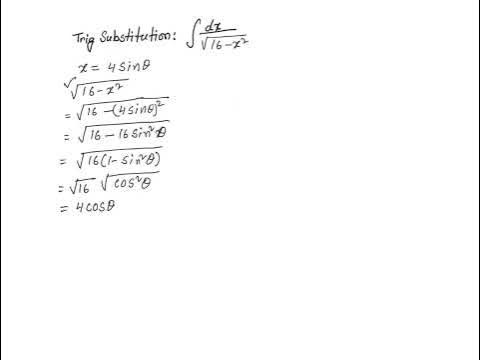 Trig Substitution: ∫ dx/√(16-x²)
x = 4 sinθ
√(16-x²)
= √(16-(4sinθ)²)
= √(16-16sin²θ)
= √(16(1-sin²θ))
= √16 √(cos²θ)
= 4cosθ